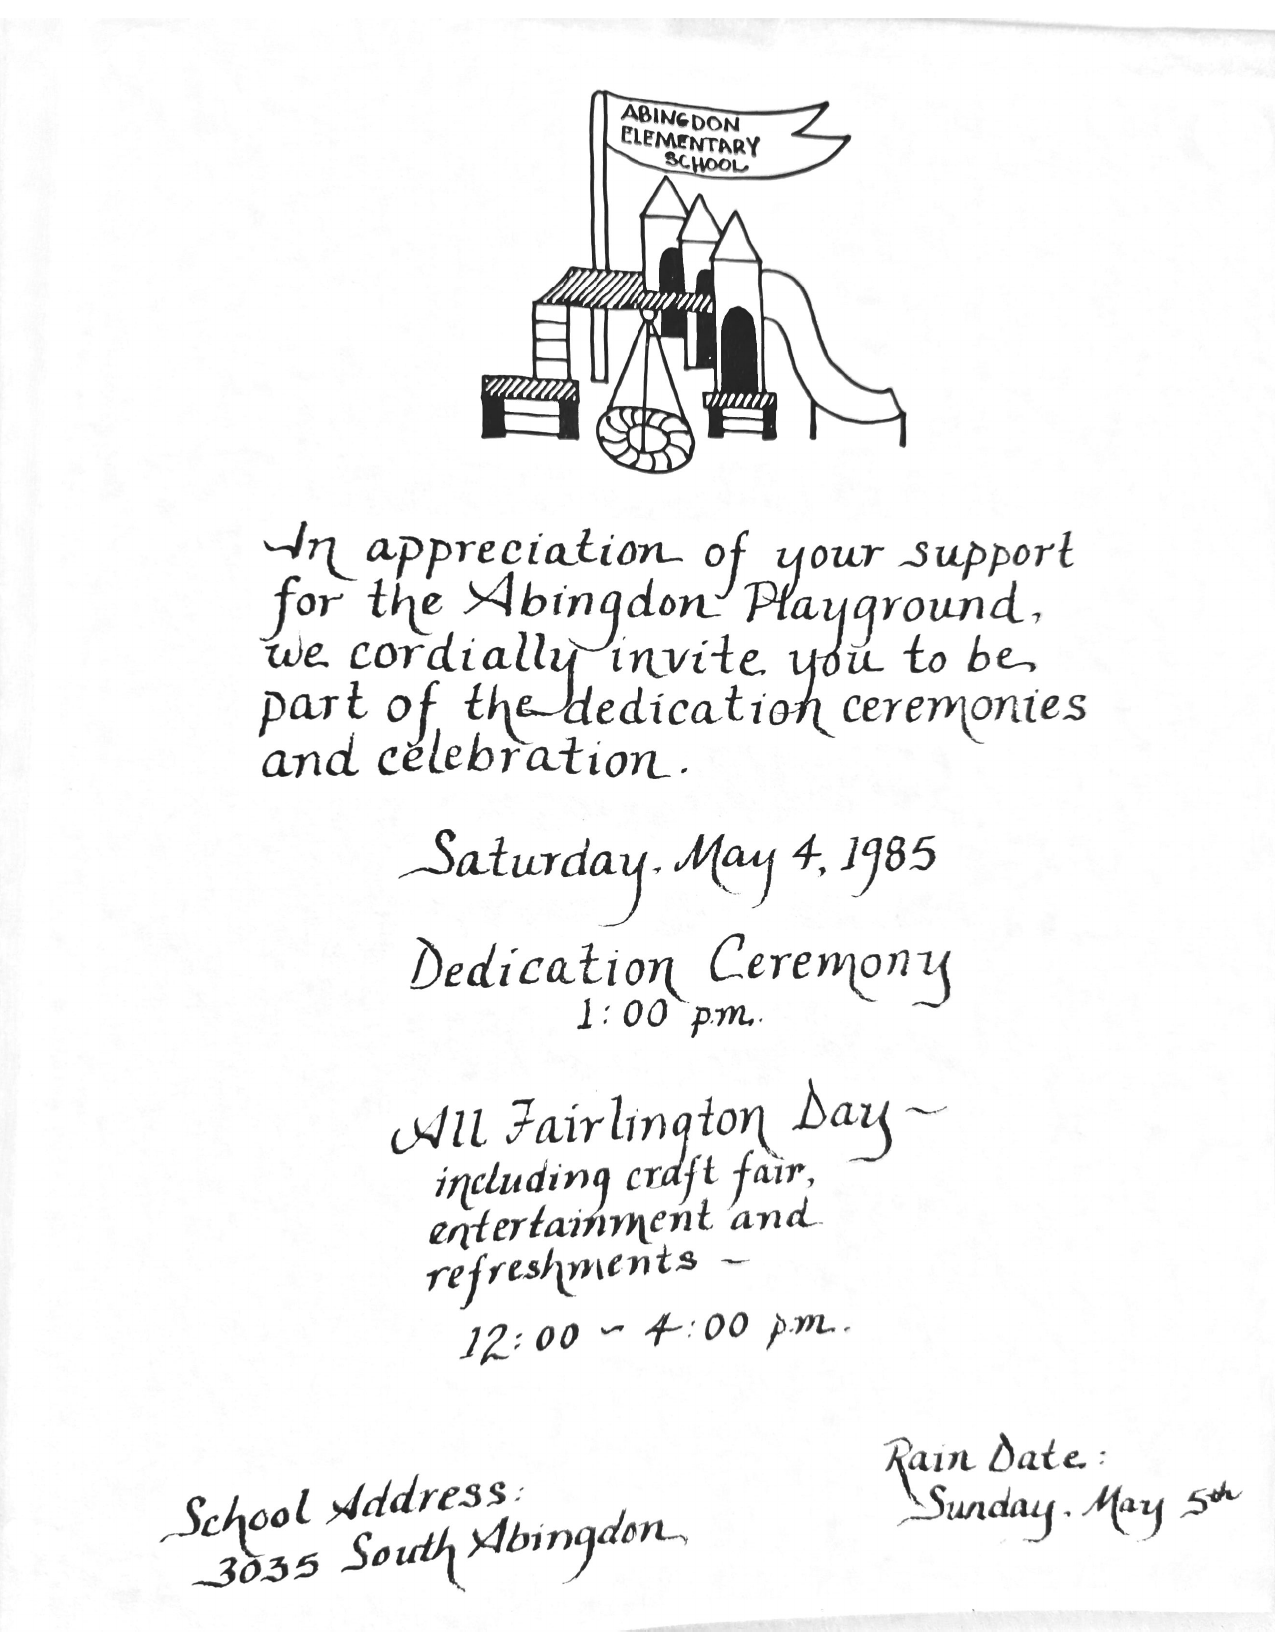 ABINGDON
ELEMENTARY
SCHOOL
In appreciation of your support
for the Abingdon Playground,
we cordially invite you to be
part of the dedication ceremonies
and celebration.
Saturday, May 4, 1985
Dedication Ceremony
1:00 p.m.
All Fairlington Day ~
including craft fair,
entertainment and
refreshments ~
12:00 ~ 4:00 p.m.
School Address:
3035 South Abingdon
Rain Date:
Sunday, May 5th